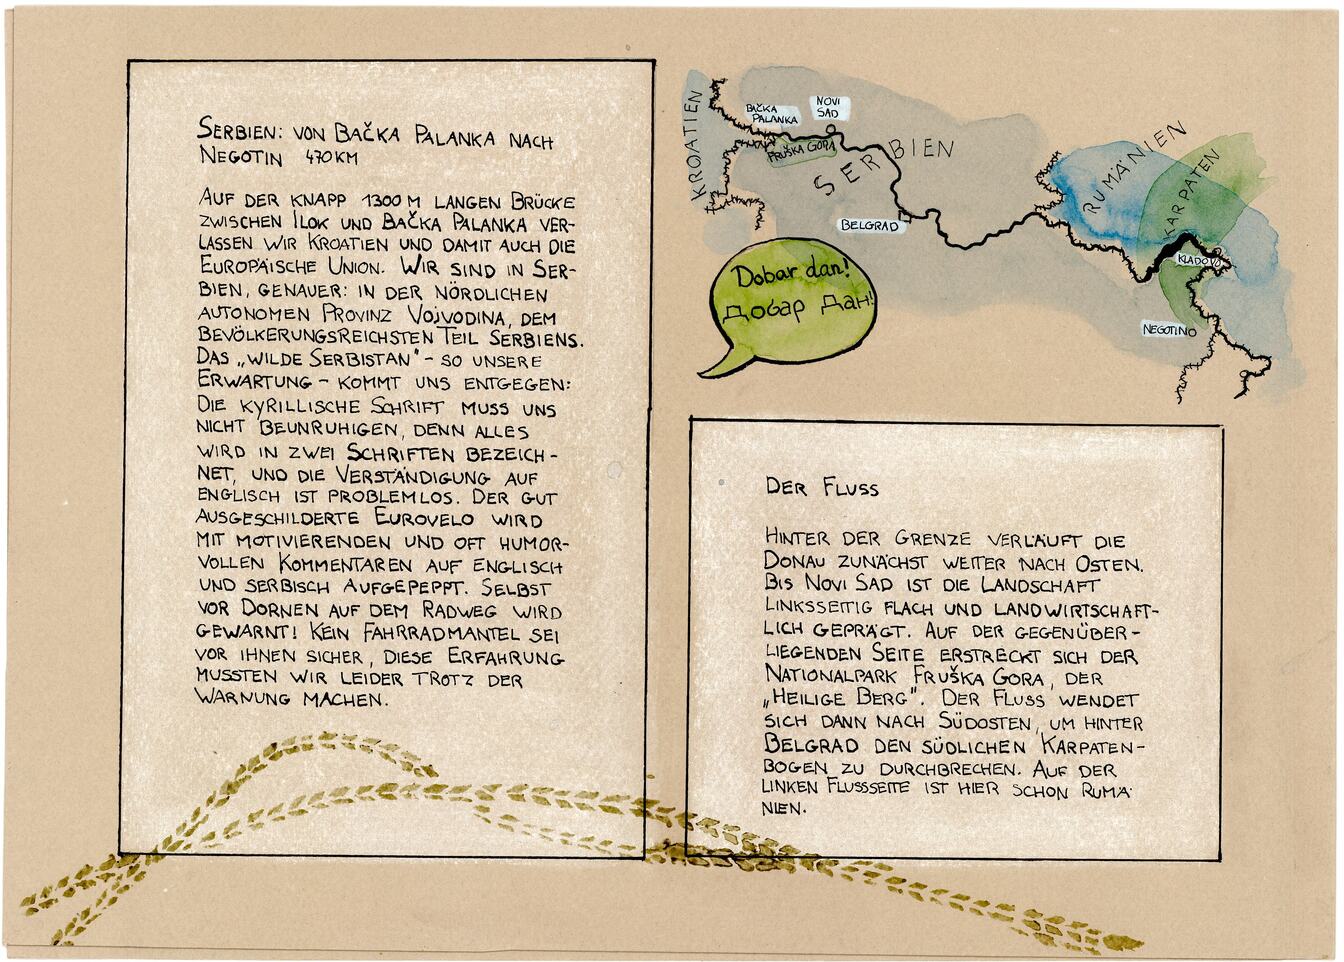 SERBIEN: VON BAČKA PALANKA NACH
NEGOTIN 470 KM
AUF DER KNAPP 1300 M LANGEN BRÜCKE
ZWISCHEN ILOK UND BAČKA PALANKA VER-
LASSEN WIR KROATIEN UND DAMIT AUCH DIE
EUROPÄISCHE UNION. WIR SIND IN SER-
BIEN, GENAUER: IN DER NÖRDLICHEN
AUTONOMEN PROVINZ VOJVODINA, DEM
BEVÖLKERUNGSREICHSTEN TEIL SERBIENS.
DAS „WILDE SERBISTAN" - SO UNSERE
ERWARTUNG - KOMMT UNS ENTGEGEN:
DIE KYRILLISCHE SCHRIFT MUSS UNS
NICHT BEUNRUHIGEN, DENN ALLES
WIRD IN ZWEI SCHRIFTEN BEZEICH-
NET, UND DIE VERSTÄNDIGUNG AUF
ENGLISCH IST PROBLEMLOS. DER GUT
AUSGESCHILDERTE EUROVELO WIRD
MIT MOTIVIERENDEN UND OFT HUMOR-
VOLLEN KOMMENTAREN AUF ENGLISCH
UND SERBISCH AUFGEPEPPT. SELBST
VOR DORNEN AUF DEM RADWEG WIRD
GEWARNT! KEIN FAHRRADMANTEL SEI
VOR IHNEN SICHER, DIESE ERFAHRUNG
MUSSTEN WIR LEIDER TROTZ DER
WARNUNG MACHEN.
KROATIEN
BAČKA
PALANKA
NOVI
SAD
FRUŠKA GORA
SERBIEN
BELGRAD
RUMÄNIEN
KARPATEN
KLADOVO
NEGOTINO
Dobar dan!
Добар Дан!
DER FLUSS
HINTER DER GRENZE VERLÄUFT DIE
DONAU ZUNÄCHST WEITER NACH OSTEN.
BIS NOVI SAD IST DIE LANDSCHAFT
LINKSSEITIG FLACH UND LANDWIRTSCHAFT-
LICH GEPRÄGT. AUF DER GEGENÜBER-
LIEGENDEN SEITE ERSTRECKT SICH DER
NATIONALPARK FRUŠKA GORA, DER
„HEILIGE BERG". DER FLUSS WENDET
SICH DANN NACH SÜDOSTEN, UM HINTER
BELGRAD DEN SÜDLICHEN KARPATEN-
BOGEN ZU DURCHBRECHEN. AUF DER
LINKEN FLUSSSEITE IST HIER SCHON RUMÄ-
NIEN.